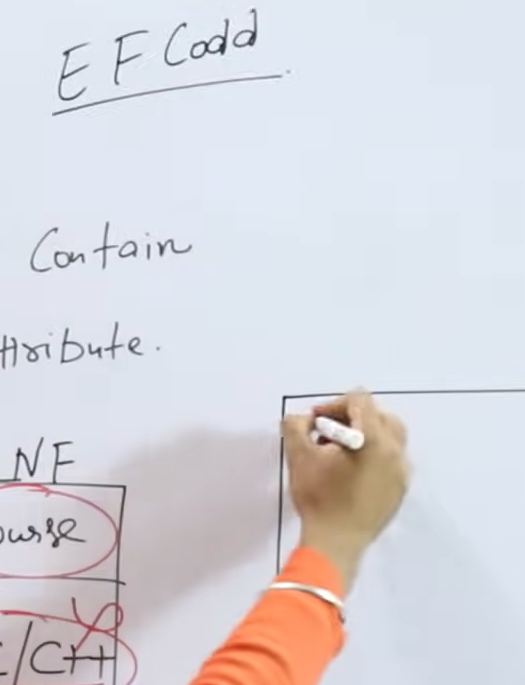 E F Codd
Contain
ttribute.
NF
ourse
C/C++